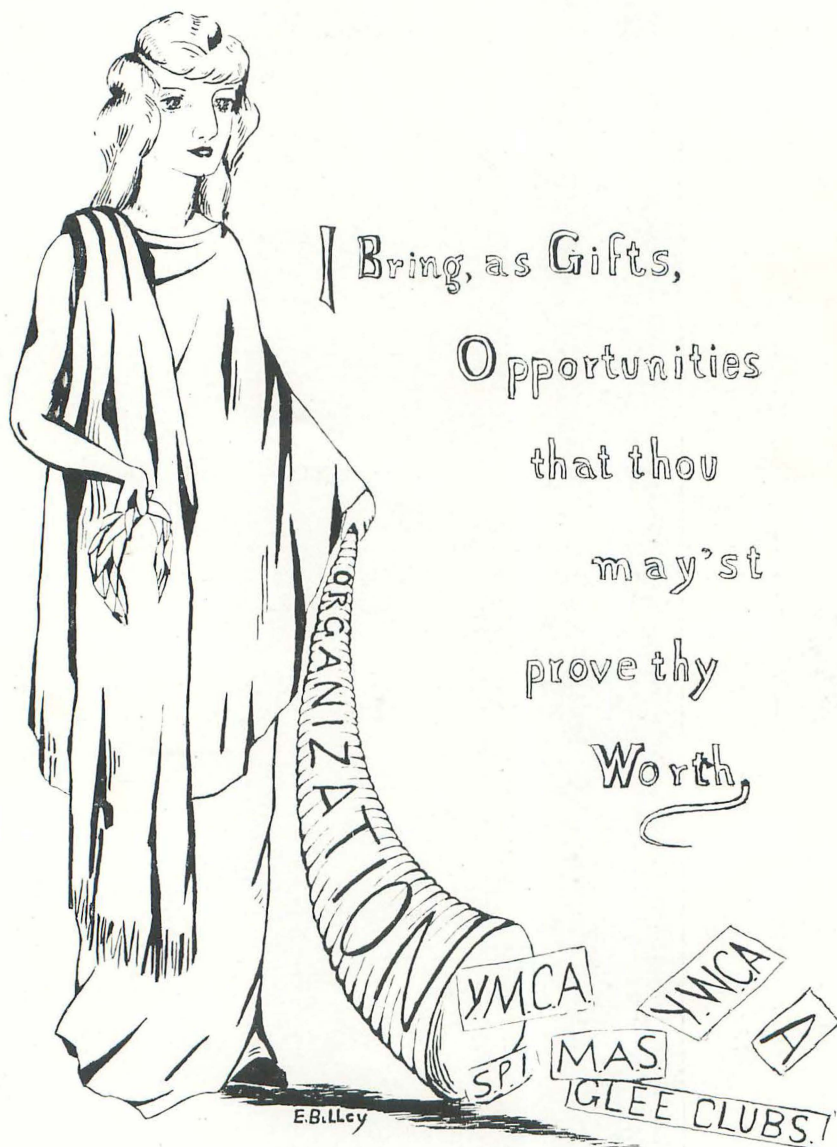 I Bring, as Gifts,
Opportunities
that thou
may'st
prove thy
Worth
ORGANIZATION
Y.M.C.A.
Y.W.C.A
A
S.P.I
M.A.S.
GLEE CLUBS.
E.Billey